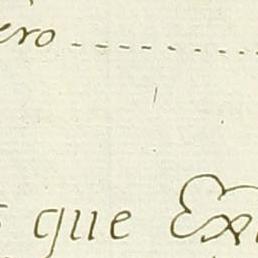 ero ............
s que Ex